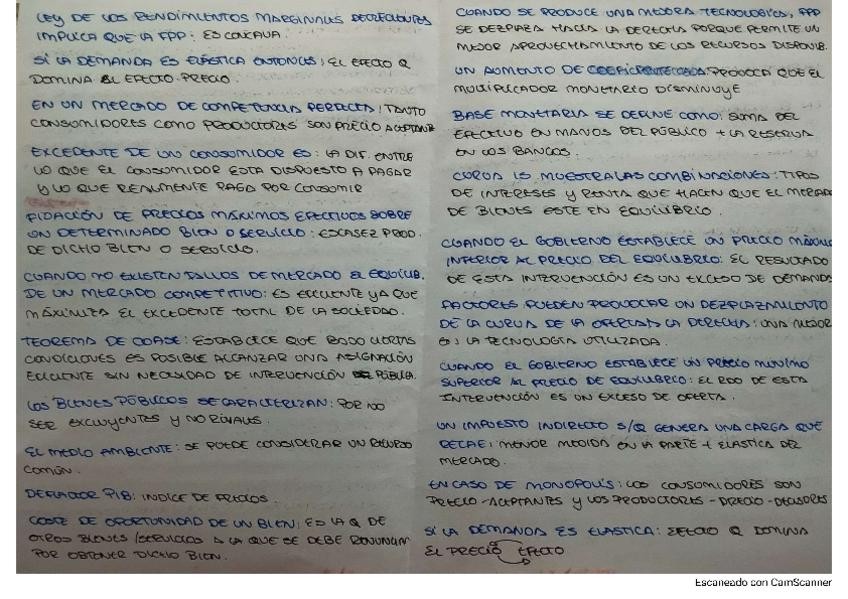 LEY DE LOS RENDIMIENTOS MARGINALES DECRECIENTES
IMPLICA QUE LA FPP: ES CONCAVA.
SI LA DEMANDA ES ELÁSTICA ENTONCES; EL EFECTO Q
DOMINA EL EFECTO PRECIO.
EN UN MERCADO DE COMPETENCIA PERFECTA; TANTO
CONSUMIDORES COMO PRODUCTORES SON PRECIO ACEPTANT
EXCEDENTE DE UN CONSUMIDOR ES: LA DIF. ENTRE
LO QUE EL CONSUMIDOR ESTA DISPUESTO A PAGAR
Y LO QUE REALMENTE PAGA POR CONSUMIR
FIJACIÓN DE PRECIOS MÁXIMOS EFECTIVOS SOBRE
UN DETERMINADO BIEN O SERVICIO: ESCASEZ PROD.
DE DICHO BIEN O SERVICIO.
CUANDO NO EXISTEN FALLOS DE MERCADO EL EQUILIB.
DE UN MERCADO COMPETITIVO: ES EFICIENTE YA QUE
MÁXIMIZA EL EXCEDENTE TOTAL DE LA SOCIEDAD.
TEOREMA DE COASE: ESTABLECE QUE BAJO CIERTAS
CONDICIONES ES POSIBLE ALCANZAR UNA ASIGNACIÓN
EFICIENTE SIN NECESIDAD DE INTERVENCIÓN PÚBLICA.
LOS BIENES PÚBLICOS SE CARACTERIZAN: POR NO
SER EXCLUYENTES Y NO RIVALES.
EL MEDIO AMBIENTE: SE PUEDE CONSIDERAR UN RECURSO
COMÚN.
DEFLACTOR PIB: INDICE DE PRECIOS.
COSTE DE OPORTUNIDAD DE UN BIEN; ES LA Q DE
OTROS BIENES/SERVICIOS A LA QUE SE DEBE RENUNCIAR
POR OBTENER DICHO BIEN.
CUANDO SE PRODUCE UNA MEJORA TECNOLOGICA, FPP
SE DEZPLAZA HACIA LA DERECHA PORQUE PERMITE UN
MEJOR APROVECHAMIENTO DE LOS RECURSOS DISPONIB.
UN AUMENTO DE PROVOCA QUE EL
MULTIPLICADOR MONETARIO DISMINUYE
BASE MONETARIA SE DEFINE COMO: SUMA DEL
EFECTIVO EN MANOS DEL PÚBLICO + LA RESERVA
EN LOS BANCOS.
CURVA IS MUESTRA LAS COMBINACIONES: TIPOS
DE INTERESES Y RENTA QUE HACEN QUE EL MERCAD
DE BIENES ESTE EN EQUILIBRIO.
CUANDO EL GOBIERNO ESTABLECE UN PRECIO MÁXIMO
INFERIOR AL PRECIO DEL EQUILIBRIO: EL RESULTADO
DE ESTA INTERVENCIÓN ES UN EXCESO DE DEMANDA
FACTORES PUEDEN PROVOCAR UN DEZPLAZAMIENTO
DE LA CURVA DE LA OFERTA A LA DERECHA: UNA MEJOR
EN LA TECNOLOGIA UTILIZADA.
CUANDO EL GOBIERNO ESTABLECE UN PRECIO MINIMO
SUPERIOR AL PRECIO DE EQUILIBRIO: EL RDO DE ESTA
INTERVENCIÓN ES UN EXCESO DE OFERTA.
UN IMPUESTO INDIRECTO S/Q GENERA UNA CARGA QUE
RECAE: MENOR MEDIDA EN LA PARTE + ELASTICA DEL
MERCADO.
EN CASO DE MONOPOLIS: LOS CONSUMIDORES SON
PRECIO-ACEPTANTES Y LOS PRODUCTORES-PRECIO-DECISORES
SI LA DEMANDA ES ELASTICA: EFECTO Q DOMINA
EL PRECIO EFECTO
Escaneado con CamScanner